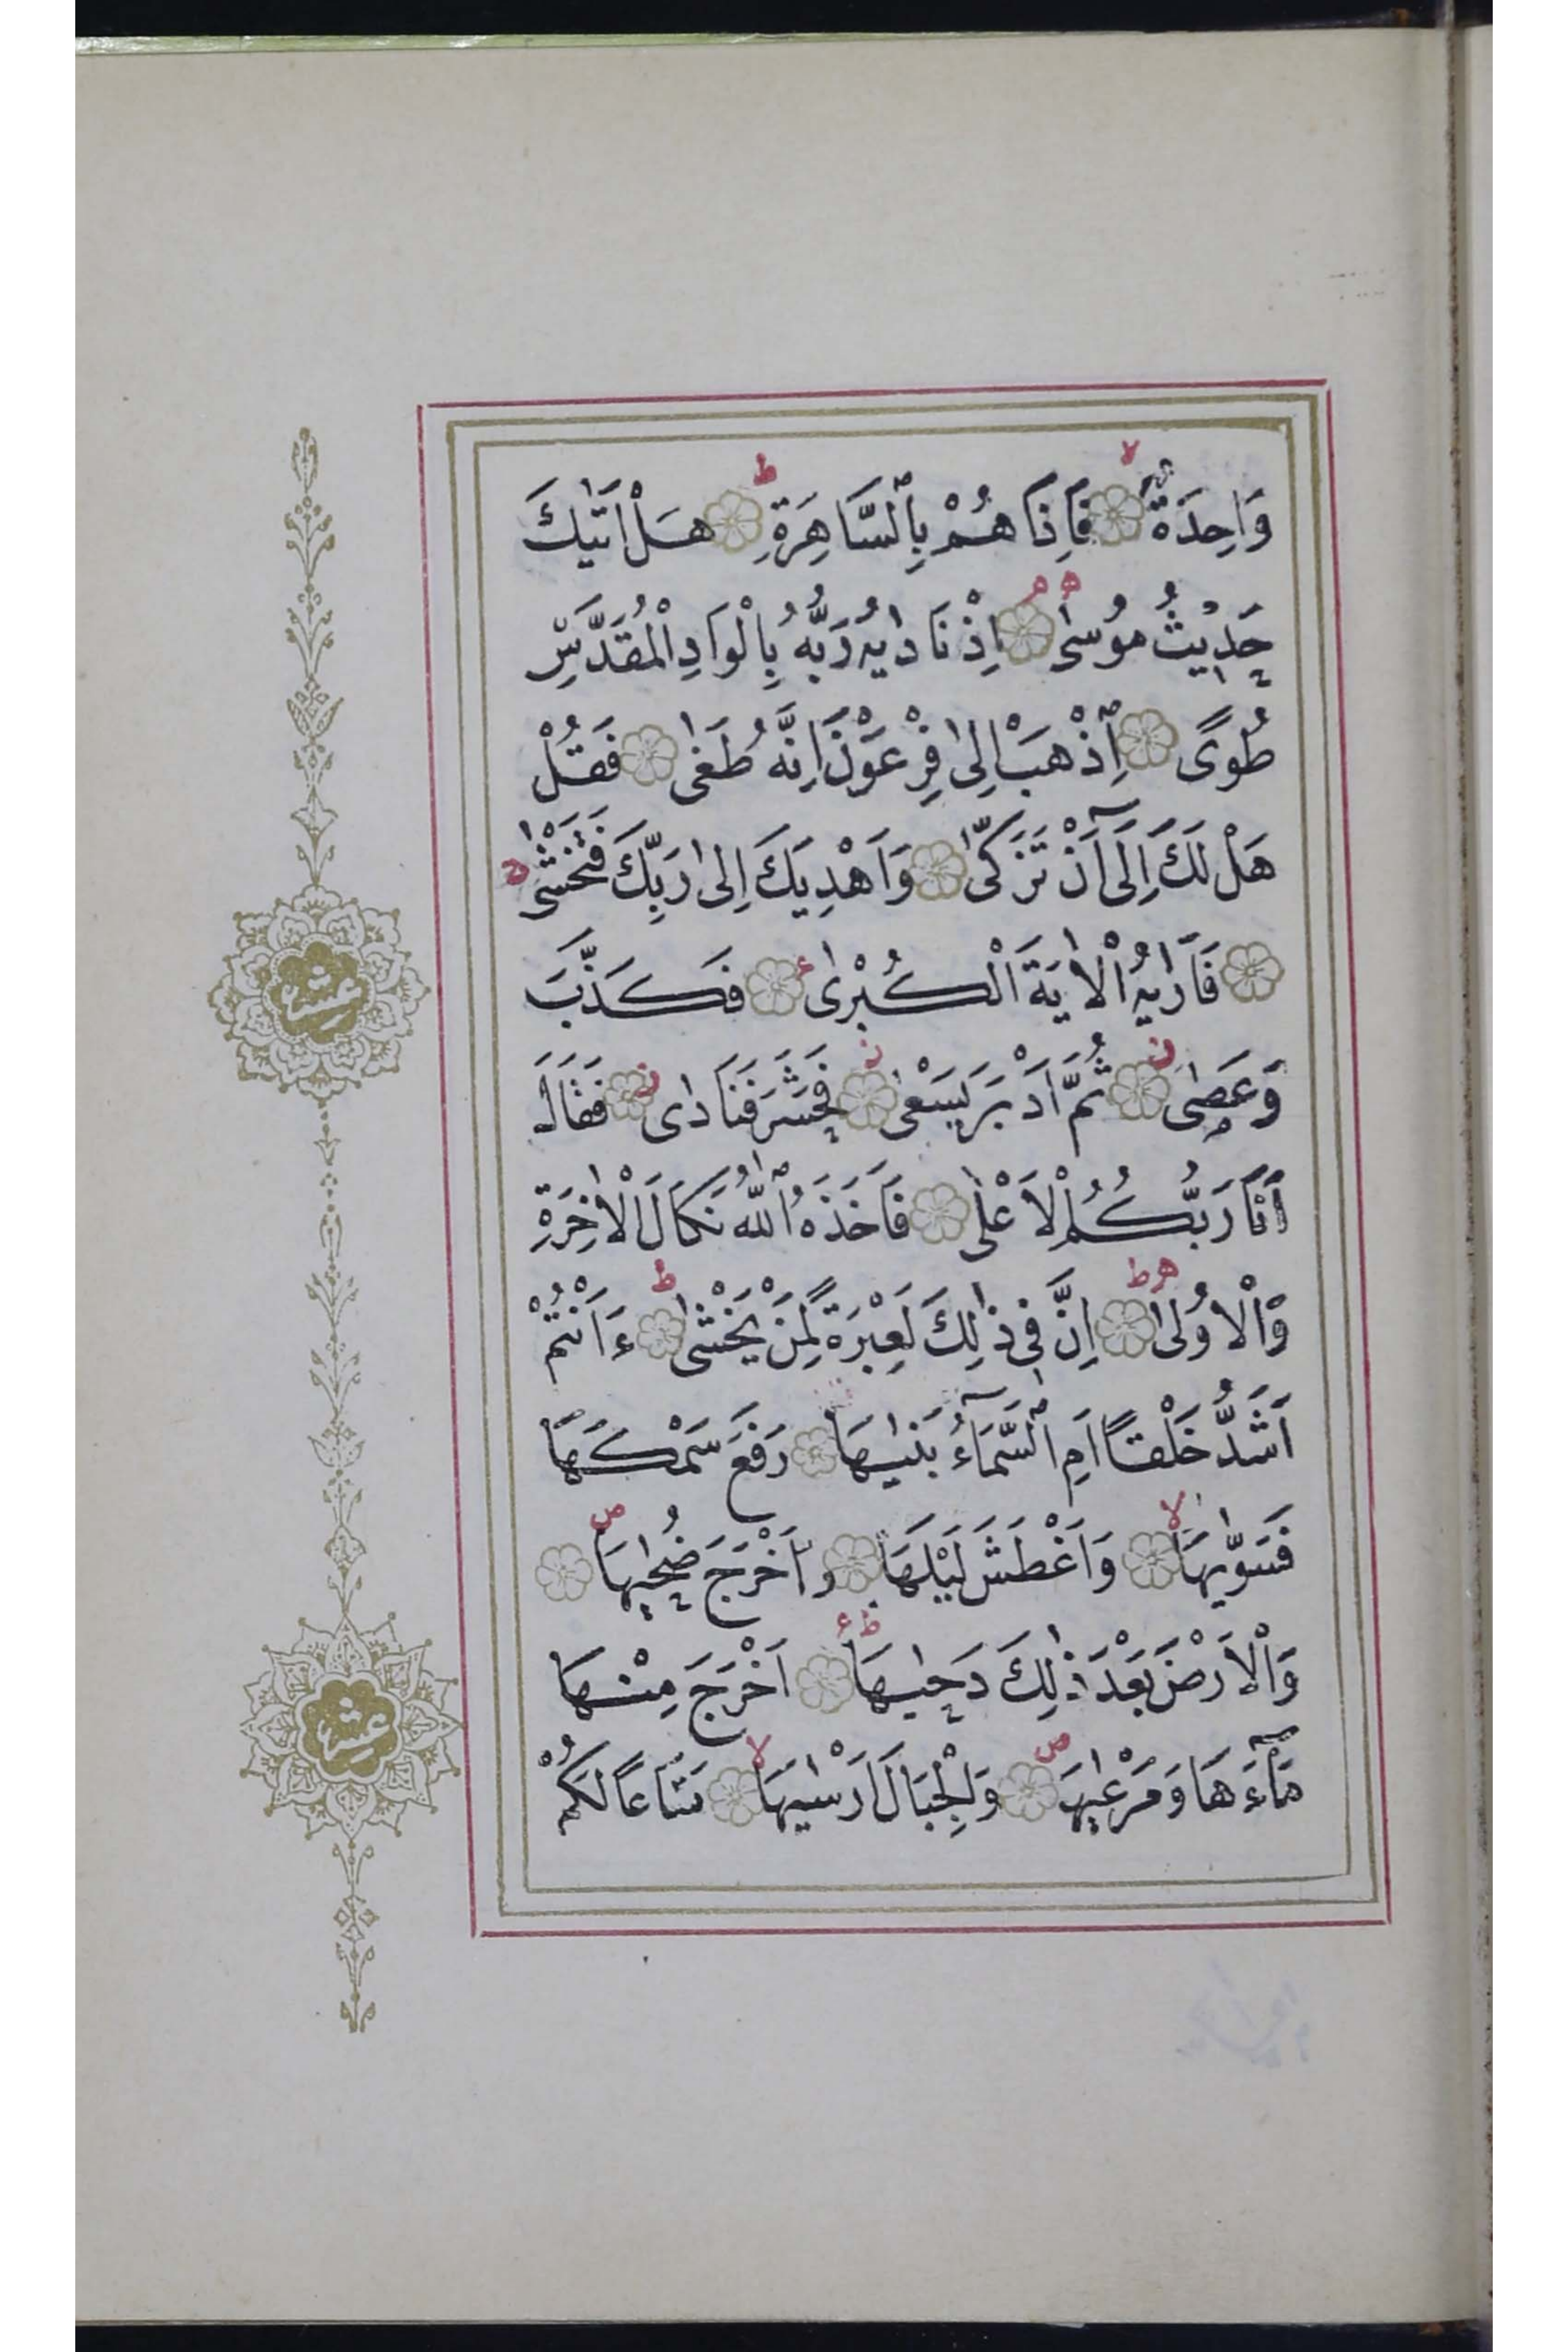 وَاحِدَةٌ فَاِذَا هُمْ بِالسَّاهِرَةِ هَلْ اَتٰيكَ
حَدِيثُ مُوسٰى اِذْ نَادٰيهُ رَبُّهُ بِالْوَادِ الْمُقَدَّسِ
طُوًى اِذْهَبْ اِلٰى فِرْعَوْنَ اِنَّهُ طَغٰى فَقُلْ
هَلْ لَكَ اِلٰٓى اَنْ تَزَكّٰى وَاَهْدِيَكَ اِلٰى رَبِّكَ فَتَخْشٰى
فَاَرٰيهُ الْاٰيَةَ الْكُبْرٰى فَكَذَّبَ
وَعَصٰى ثُمَّ اَدْبَرَ يَسْعٰى فَحَشَرَ فَنَادٰى فَقَالَ
اَنَا رَبُّكُمُ الْاَعْلٰى فَاَخَذَهُ اللّٰهُ نَكَالَ الْاٰخِرَةِ
وَالْاُولٰى اِنَّ فِى ذٰلِكَ لَعِبْرَةً لِمَنْ يَخْشٰى ءَاَنْتُمْ
اَشَدُّ خَلْقًا اَمِ السَّمَآءُ بَنٰيهَا رَفَعَ سَمْكَهَا
فَسَوّٰيهَا وَاَغْطَشَ لَيْلَهَا وَاَخْرَجَ ضُحٰيهَا
وَالْاَرْضَ بَعْدَ ذٰلِكَ دَحٰيهَا اَخْرَجَ مِنْهَا
مَآءَهَا وَمَرْعٰيهَا وَالْجِبَالَ اَرْسٰيهَا مَتَاعًا لَكُمْ
عشر
عشر